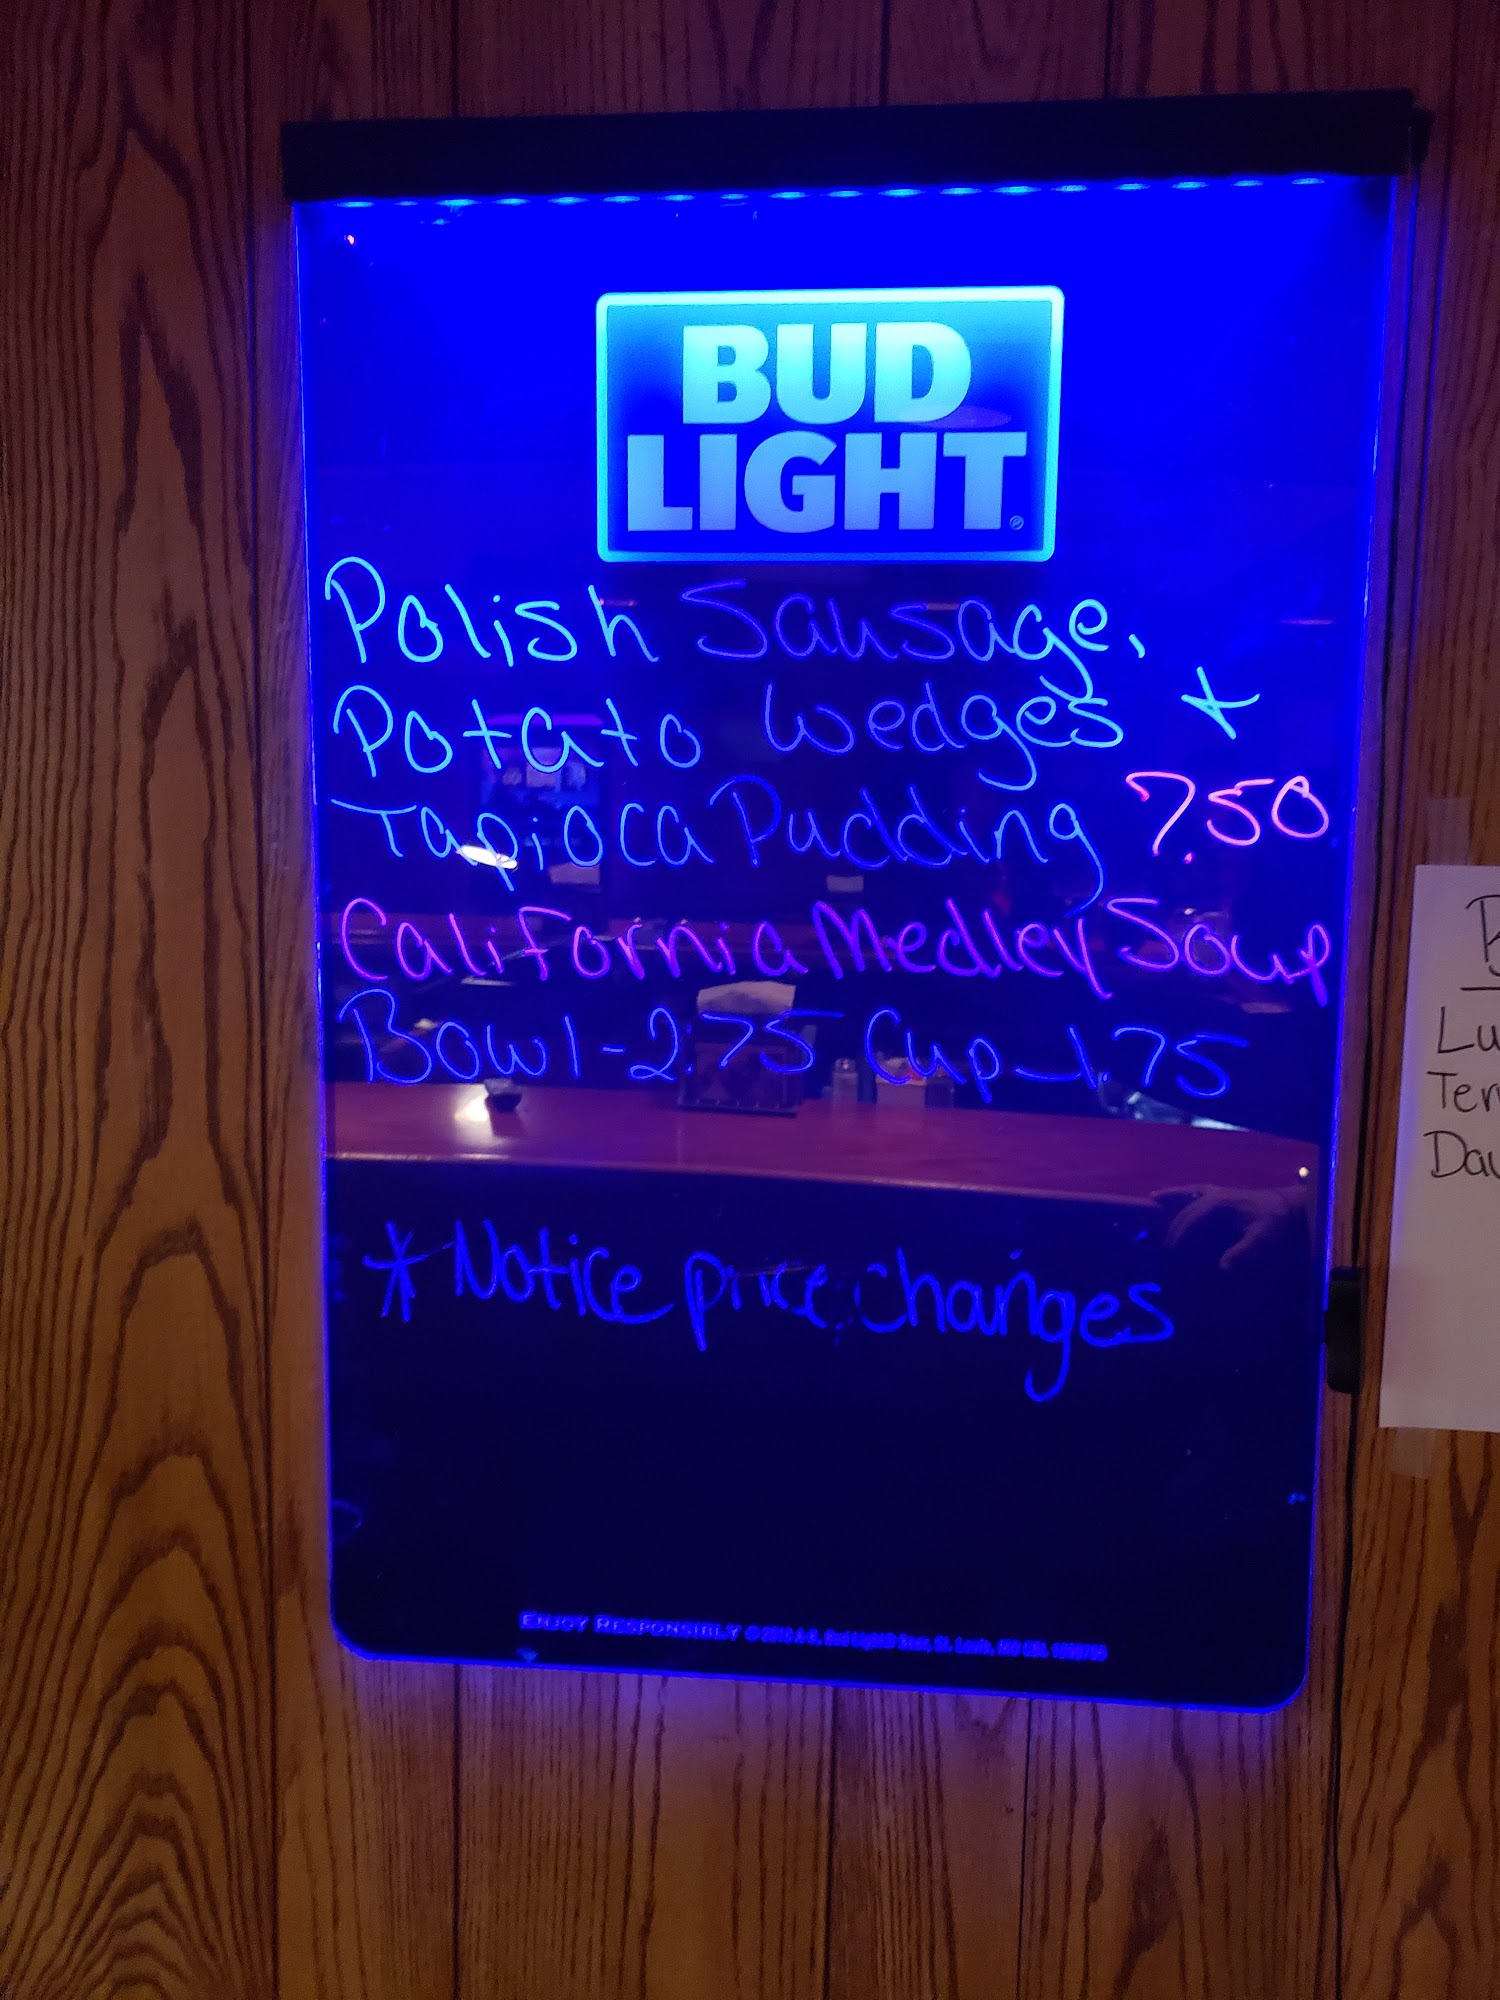 BUD
LIGHT
Polish Sausage,
Potato Wedges *
Tapioca Pudding 7.50
California Medley Soup
Bowl-2.75 Cup-1.75
* Notice price changes
ENJOY RESPONSIBLY
Lu
Ter
Dav